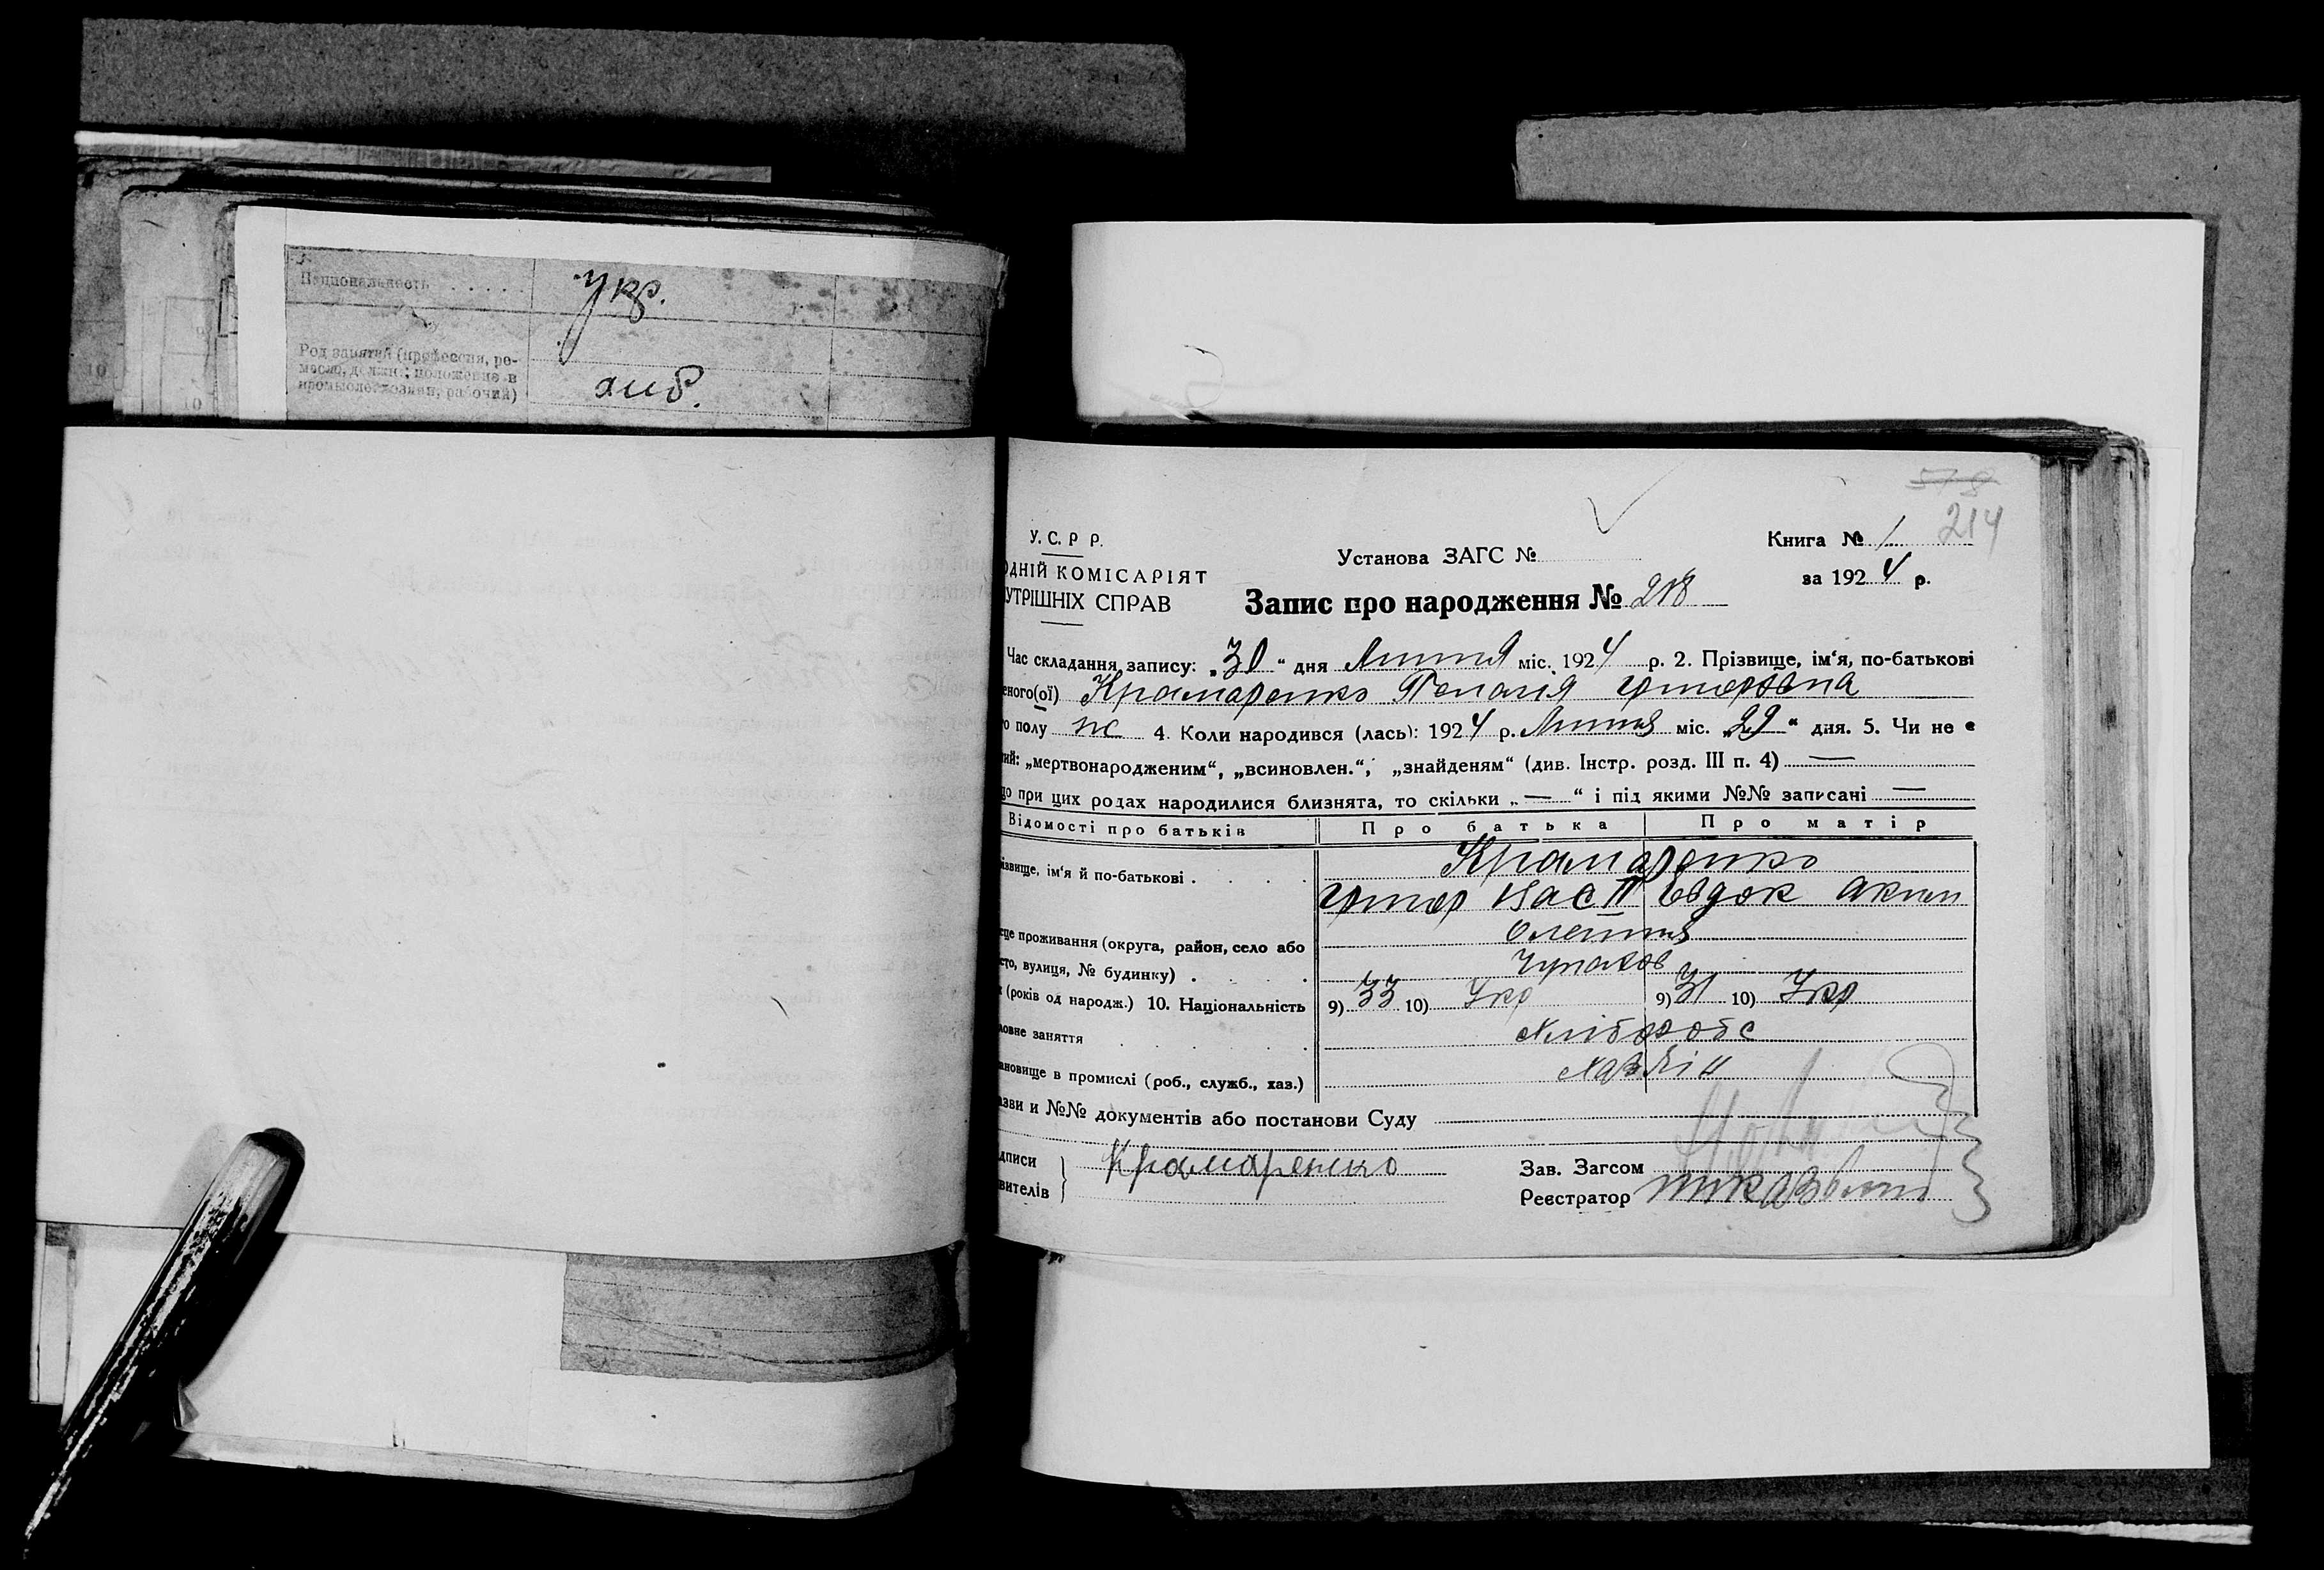 Национальность . . . . . укр.
Род занятий (профессия, ре-
месло, должн.; положение в
промысле: хозяин, рабочий)
хліб.
10
10
У. С. Р Р.
ОДНІЙ КОМІСАРІЯТ
УТРІШНІХ СПРАВ
Установа ЗАГС №
Запис про народження № 218
Книга № 1
214
за 1924 р.
Час складання запису: „30“ дня Липня міс. 1924 р. 2. Прізвище, ім‘я, по-батькові
еного(ої) Крамаренко Пелагія Григоровна
о полу ж 4. Коли народився (лась): 1924 р. Липня міс. „29“ дня. 5. Чи не є
ний: „мертвонародженим“, „всиновлен.“, „знайденям“ (див. Інстр. розд. III п. 4) —
що при цих родах народилися близнята, то скільки „—“ і під якими №№ записані —
Відомості про батьків Про батька Про матір
ізвище, ім‘я й по-батькові . . . . Крамаренко
Григор Вас II Євдок Аким
сце проживання (округа, район, село або
сто, вулиця, № будинку) . . . .
(років од народж.) 10. Національність 9) 33 10) Укр 9) 31 10) Укр
ловне заняття . . . . Хлібороб
ановище в промислі (роб., служб., хаз.) Хазяін
азви и №№ документів або постанови Суду
дписи
вителів } Крамаренко
Зав. Загсом
Реєстратор